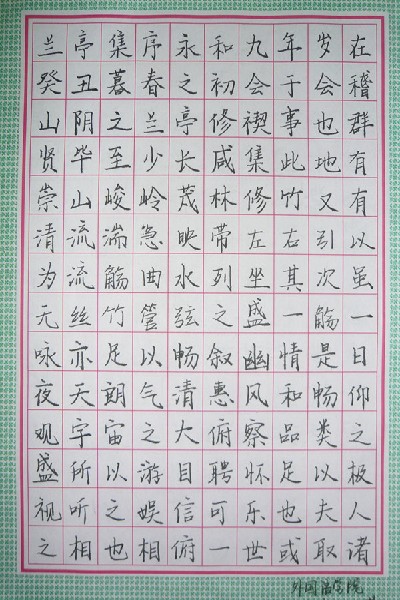 兰亭集序永和九年岁在
癸丑暮春之初会于会稽
山阴之兰亭修禊事也群
贤毕至少长咸集此地有
崇山峻岭茂林修竹又有
清流湍急映带左右引以
为流觞曲水列坐其次虽
无丝竹管弦之盛一觞一
咏亦足以畅叙幽情是日
夜天朗气清惠风和畅仰
观宇宙之大俯察品类之
盛所以游目聘怀足以极
视听之娱信可乐也夫人
之相也相俯一世或取诸
外国语学院